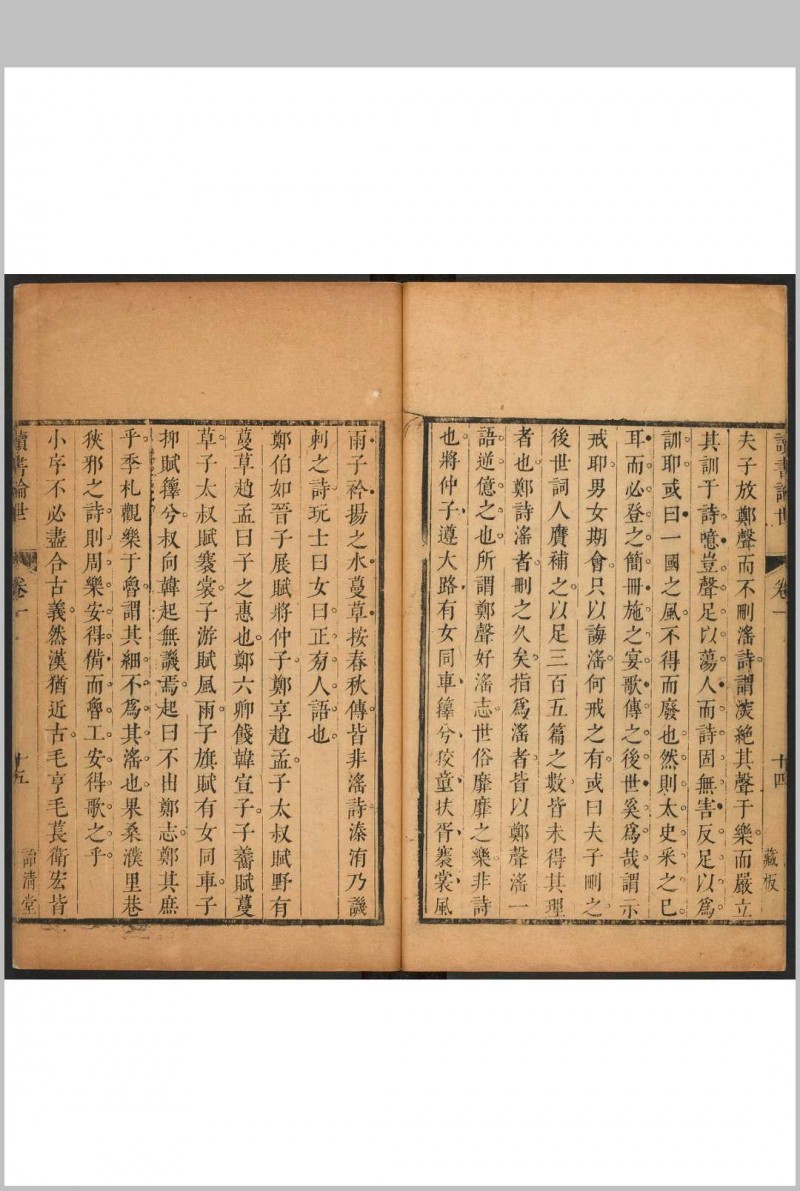 讀書論世 卷一 十四 藏板
夫子放鄭聲而不刪淫詩謂淡絕其聲于樂而嚴立
其訓于詩噫豈聲足以蕩人而詩固無害反足以爲
訓耶或曰一國之風不得而廢也然則太史采之已
耳而必登之簡冊施之宴歌傳之後世奚爲哉謂示
戒耶男女期會只以誨淫何戒之有或曰夫子刪之
後世詞人贗補之以足三百五篇之數皆未得其理
者也鄭詩淫者刪之久矣指爲淫者皆以鄭聲淫一
語逆億之也所謂鄭聲好淫志世俗靡靡之樂非詩
也將仲子遵大路有女同車蘀兮狡童扶胥褰裳風
雨子衿揚之水蔓草按春秋傳皆非淫詩溱洧乃譏
刺之詩玩士曰女曰正旁人語也
鄭伯如晉子展賦將仲子鄭享趙孟子太叔賦野有
蔓草趙孟曰子之惠也鄭六卿餞韓宣子子齹賦蔓
草子太叔賦褰裳子游賦風雨子旗賦有女同車子
抑賦蘀兮叔向韓起無譏焉起曰不出鄭志鄭其庶
乎季札觀樂于魯謂其細不爲其淫也果桑濮里巷
狹邪之詩則周樂安得備而魯工安得歌之乎
小序不必盡合古義然漢猶近古毛亨毛萇衛宏皆
讀書論世 卷一 十五 清堂